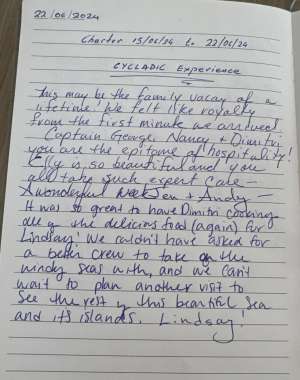 22/06/2024
Charter 15/06/24 to 22/06/24
CYCLADIC Experience
This may be the family vacay of a
lifetime! We felt like royalty
from the first minute we arrived.
Captain George, Nancy + Dimitri
you are the epitome of hospitality!
Elly is so beautiful and you
all take such expert care –
A wonderful week Jen + Andy –
It was so great to have Dimitri cooking
all of the delicious food (again) for
Lindsay! We couldn't have asked for
a better crew to take on the
windy seas with, and we can't
wait to plan another visit to
see the rest of this beautiful sea
and its islands. Lindsay!